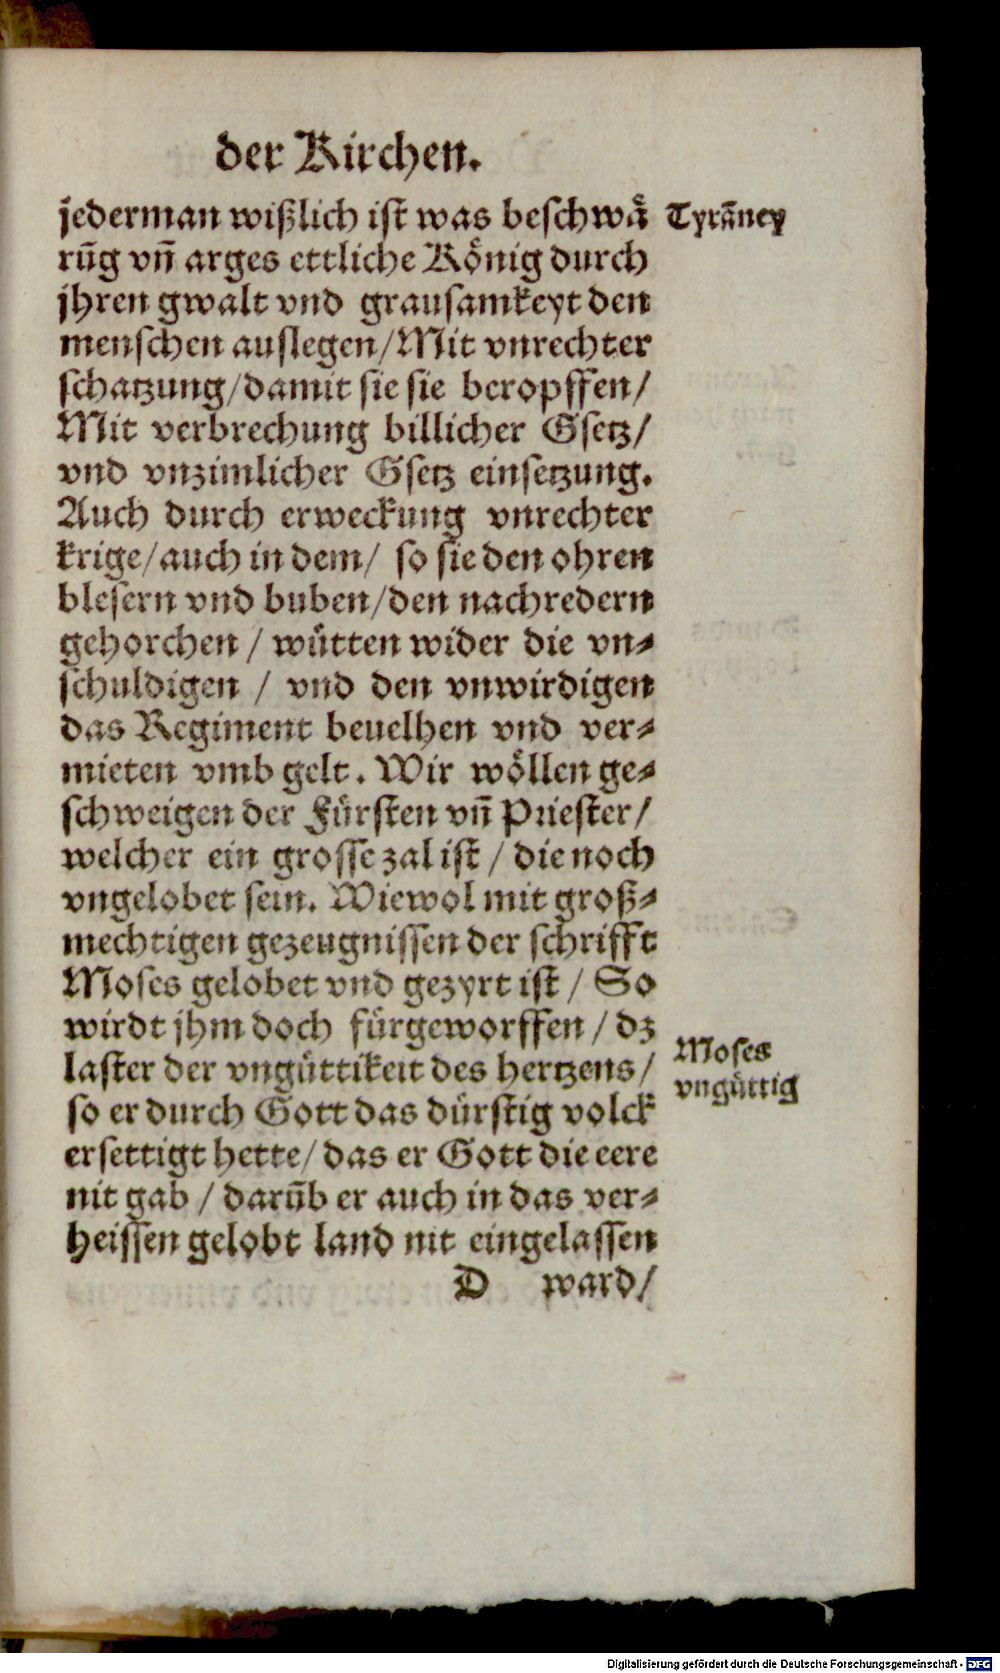 der Kirchen.
jederman wißlich ist was beschwaͤ
rūg vñ arges ettliche Koͤnig durch
jhren gwalt vnd grausamkeyt den
menschen auslegen/Mit vnrechter
schatzung/damit sie sie beropffen/
Mit verbrechung billicher Gsetz/
vnd vnzimlicher Gsetz einsetzung.
Auch durch erweckung vnrechter
krige/auch in dem/ so sie den ohren
blesern vnd buben/den nachredern
gehorchen / wuͤtten wider die vn⸗
schuldigen / vnd den vnwirdigen
das Regiment beuelhen vnd ver⸗
mieten vmb gelt. Wir woͤllen ge⸗
schweigen der Fuͤrsten vñ Priester/
welcher ein grosse zal ist / die noch
vngelobet sein. Wiewol mit groß⸗
mechtigen gezeugnissen der schrifft
Moses gelobet vnd gezyrt ist / So
wirdt jhm doch fuͤrgeworffen / dz
laster der vnguͤttikeit des hertzens/
so er durch Gott das duͤrstig volck
ersettigt hette/das er Gott die eere
nit gab / darūb er auch in das ver⸗
heissen gelobt land nit eingelassen
D ward/
Tyrāney
Moses
vnguͤttig
Digitalisierung gefördert durch die Deutsche Forschungsgemeinschaft - DFG